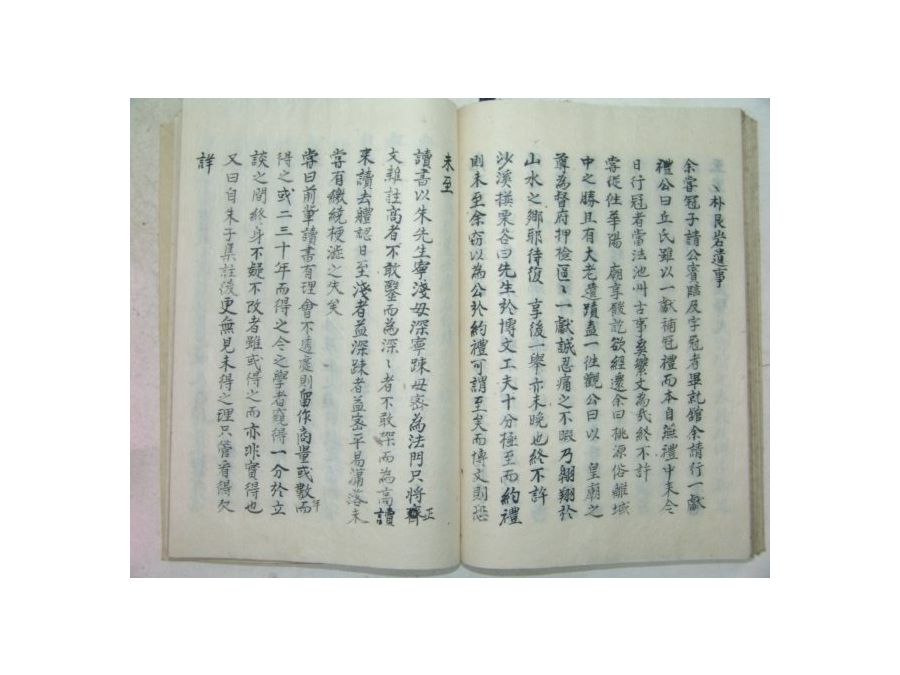 丶朴艮岩遺事
余嘗冠子請公賓臨及字冠者畢就舘余請行一獻
禮公曰丘氏雖以一獻補冠禮而本自無禮中來今
日行冠者當法池州古事奚繁文為哉終不許
嘗從往華陽 廟享餕訖欲經還余曰桃源俗離域
中之勝且有大老遺蹟盍一往觀公曰以 皇廟之
尊為督府押檢匜〻一獻誠忍痛之不暇乃翱翔於
山水之鄉耶待復 享後一舉亦未晚也終不許
沙溪撰栗谷曰先生於博文工夫十分極至而約禮
則未至余窃以為公於約禮可謂至矣而博文則恐
未至
讀書以朱先生寧淺毋深寧踈毋密為法門只將正
文雜註高者不敢鑿而為深〻者不敢架而為高讀
来讀去體認日至淺者益深踈者益密平易瀟落未
甞有繳繞梗澁之失矣
甞曰前軰讀書有理會不透處則留作商量或數年而
得之或二三十年而得之今之學者窺得一分於立
談之間終身不疑不改者雖或得之而亦非實得也
又曰自朱子集註後更無見未得之理只管看得欠
詳